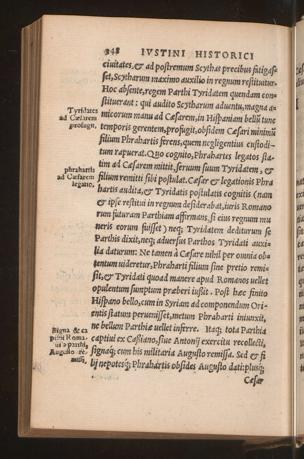 348 IVSTINI HISTORICI
ciuitates, & ad postremum Scythas precibus fatigas=
set, Scytharum maximo auxilio in regnum restituitur.
Hoc absente, regem Parthi Tyridatem quendam con=
stituerant: qui audito Scytharum aduentu, magna a=
micorum manu ad Cæsarem, in Hispaniam bellũ tunc
temporis gerentem, profugit, obsidem Cæsari minimũ
filium Phrahartis ferens, quem negligentius custodi=
tum rapuerat. Quo cognito, Phrahartes legatos sta=
tim ad Cæsarem mittit, seruum suum Tyridatem, &
filium remitti sibi postulat. Cæsar & legationis Phra
hartis audita, & Tyridatis postulatis cognitis (nam
& ipse restitui in regnum desiderabat, iuris Romano
rum futuram Parthiam affirmans, si eius regnum mu
neris eorum fuisset) neq; Tyridatem dediturum se
Parthis dixit, neq; aduersus Parthos Tyridati auxi=
lia daturum: Ne tamen à Cæsare nihil per omnia ob=
tentum uideretur, Phraharti filium sine pretio remi=
sit, & Tyridati quoad manere apud Romanos uellet
opulentum sumptum præberi iußit. Post hæc finito
Hispano bello, cum in Syriam ad componendum Ori=
entis statum peruenisset, metum Phraharti iniunxit,
ne bellum Parthiæ uellet inferre. Itaq; tota Parthia
captiui ex Caßiano, siue Antonij exercitu recollecti,
signaq́; cum his militaria Augusto remissa. Sed & fi
lij nepotesq́; Phrahartis obsides Augusto dati: plusq́;
Cæsar
Tyridates
ad Cæsarem
profugit.
phrahartis
ad Cæsarem
legatio.
Signa & ca
ptiui Roma=
ni a parthis
Augusto re=
missi.